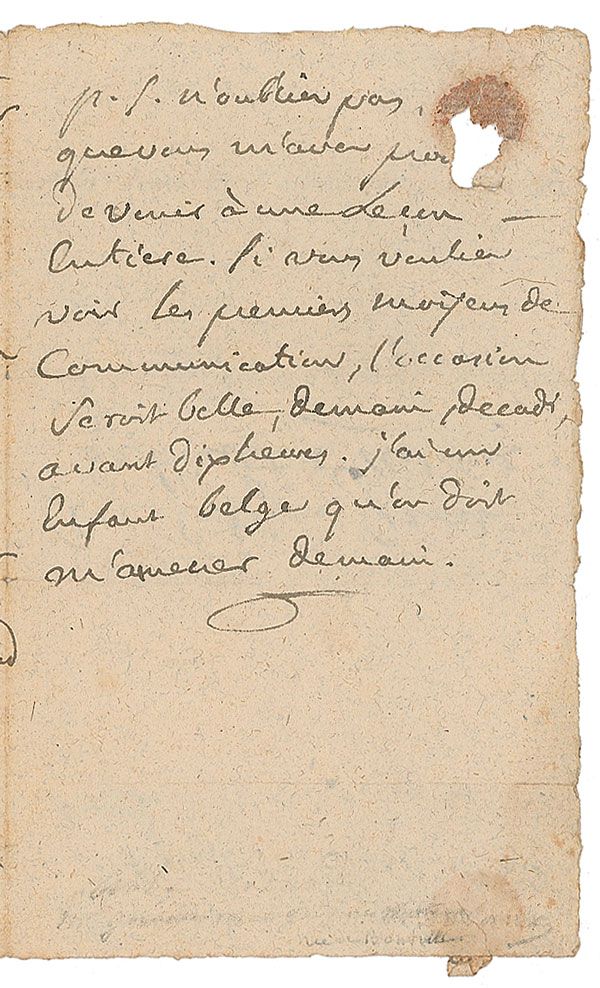 p. S. n'oubliez pas,
que vous m'avez pro
de venir à une Leçon —
Entiere. Si vous vouliez
voir les premiers moÿens de
Communication, l'occasion
Seroit belle, demain, decadi,
avant dix heures. j'ai un
Enfant belge qu'on doit
m'amener demain.